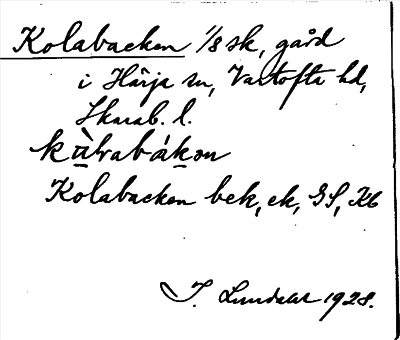 Kolabacken 1/8 sk, gård
i Härja sn, Vartofta hd,
Skarab. l.
kὰlrabákən
Kolabacken bek, ek, GS, Kb
J. Lundahl 1928.